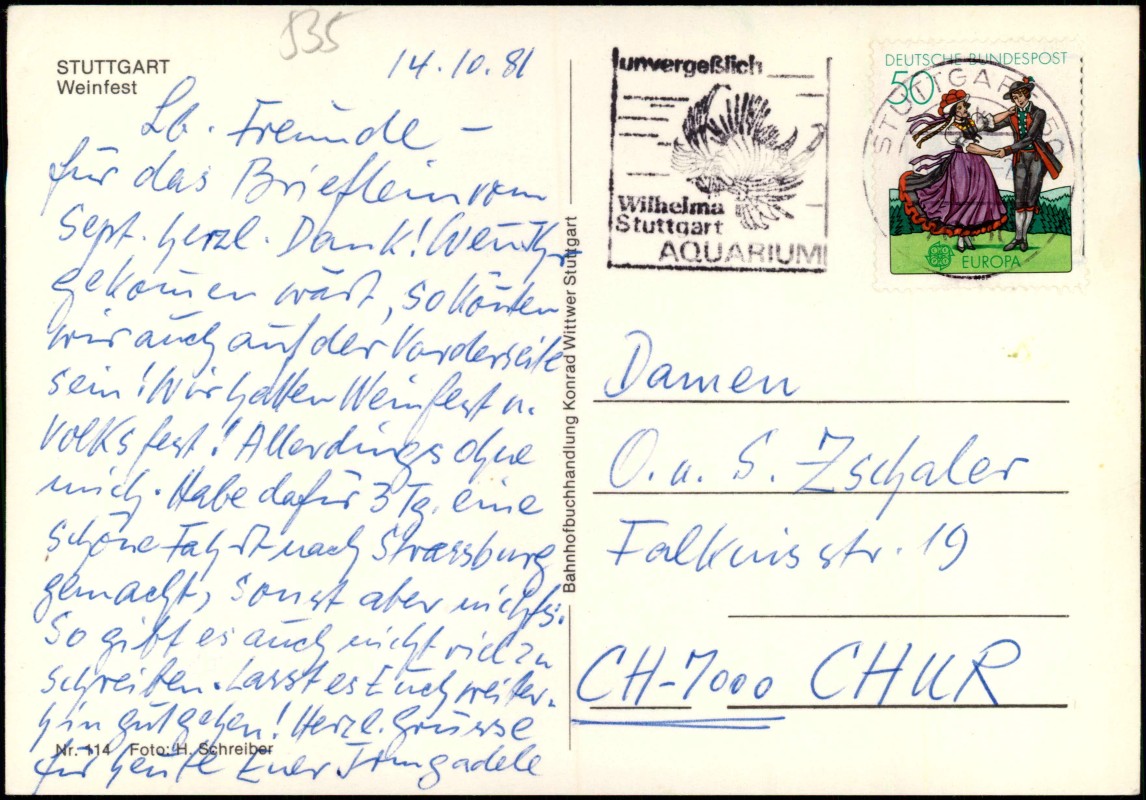 535
STUTTGART
Weinfest
14.10.81
Lb. Freunde –
für das Brieflein vom
Sept. herzl. Dank! Wenn Ihr
gekommen wärt, so könnten
wir auch auf der Vorderseite
sein! Wir hatten Weinfest u.
Volksfest! Allerdings ohne
mich. Habe dafür 3 Tg. eine
schöne Fahrt nach Strassburg
gemacht, sonst aber nichts.
So gibt es auch nicht viel zu
schreiben. Lasst es Euch weiter-
hin gut gehen! Herzl. Grüsse
für heute Euer
Nr. 114 Foto: H. Schreiber
Bahnhofbuchhandlung Konrad Wittwer Stuttgart
unvergeßlich
Wilhelma
Stuttgart
AQUARIUM
DEUTSCHE BUNDESPOST
50
EUROPA
STUTTGART
Damen
O. u. S. Zschaler
Falknisstr. 19
CH-7000 CHUR